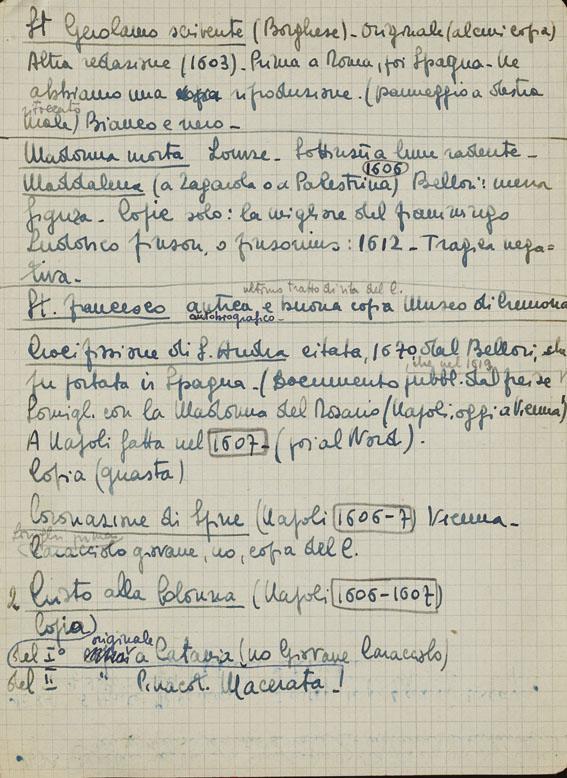 St Gerolamo scrivente (Borghese) - Originale (alcuni copia)
Altra redazione (1603) - Prima a Roma, poi Spagna - Ne
abbiamo una riproduzione. (panneggio a destra
male) Bianco e nero -
Madonna morta Louvre - Sottinsù a lume radente -
1606
Maddalena (a Zagarola o a Palestrina) Bellori: mezza
figura - Copie solo: la migliore del fiammingo
Ludovico finson, o finsonius: 1612 - Tragica nega=
tiva -
ultimo tratto di vita del C.
St. Francesco antica e buona copia Museo di Cremona
autobiografico -
Crocifissione di S. Andrea citata, 1670 dal Bellori, che
fu portata in Spagna - (Documento pubbl. dal
Somigl. con la Madonna del Rosario (Napoli, oggi a Vienna)
A Napoli fatta nel 1607 - (poi al Nord).
Copia (guasta)
Coronazione di Spine (Napoli 1606-7) Vienna -
Caracciolo giovane, no, copia del C.
2 Cristo alla Colonna (Napoli 1606-1607)
Copia)
originale
del I° a Catania (no Giovane Caracciolo)
del II " Pinacot. Macerata!